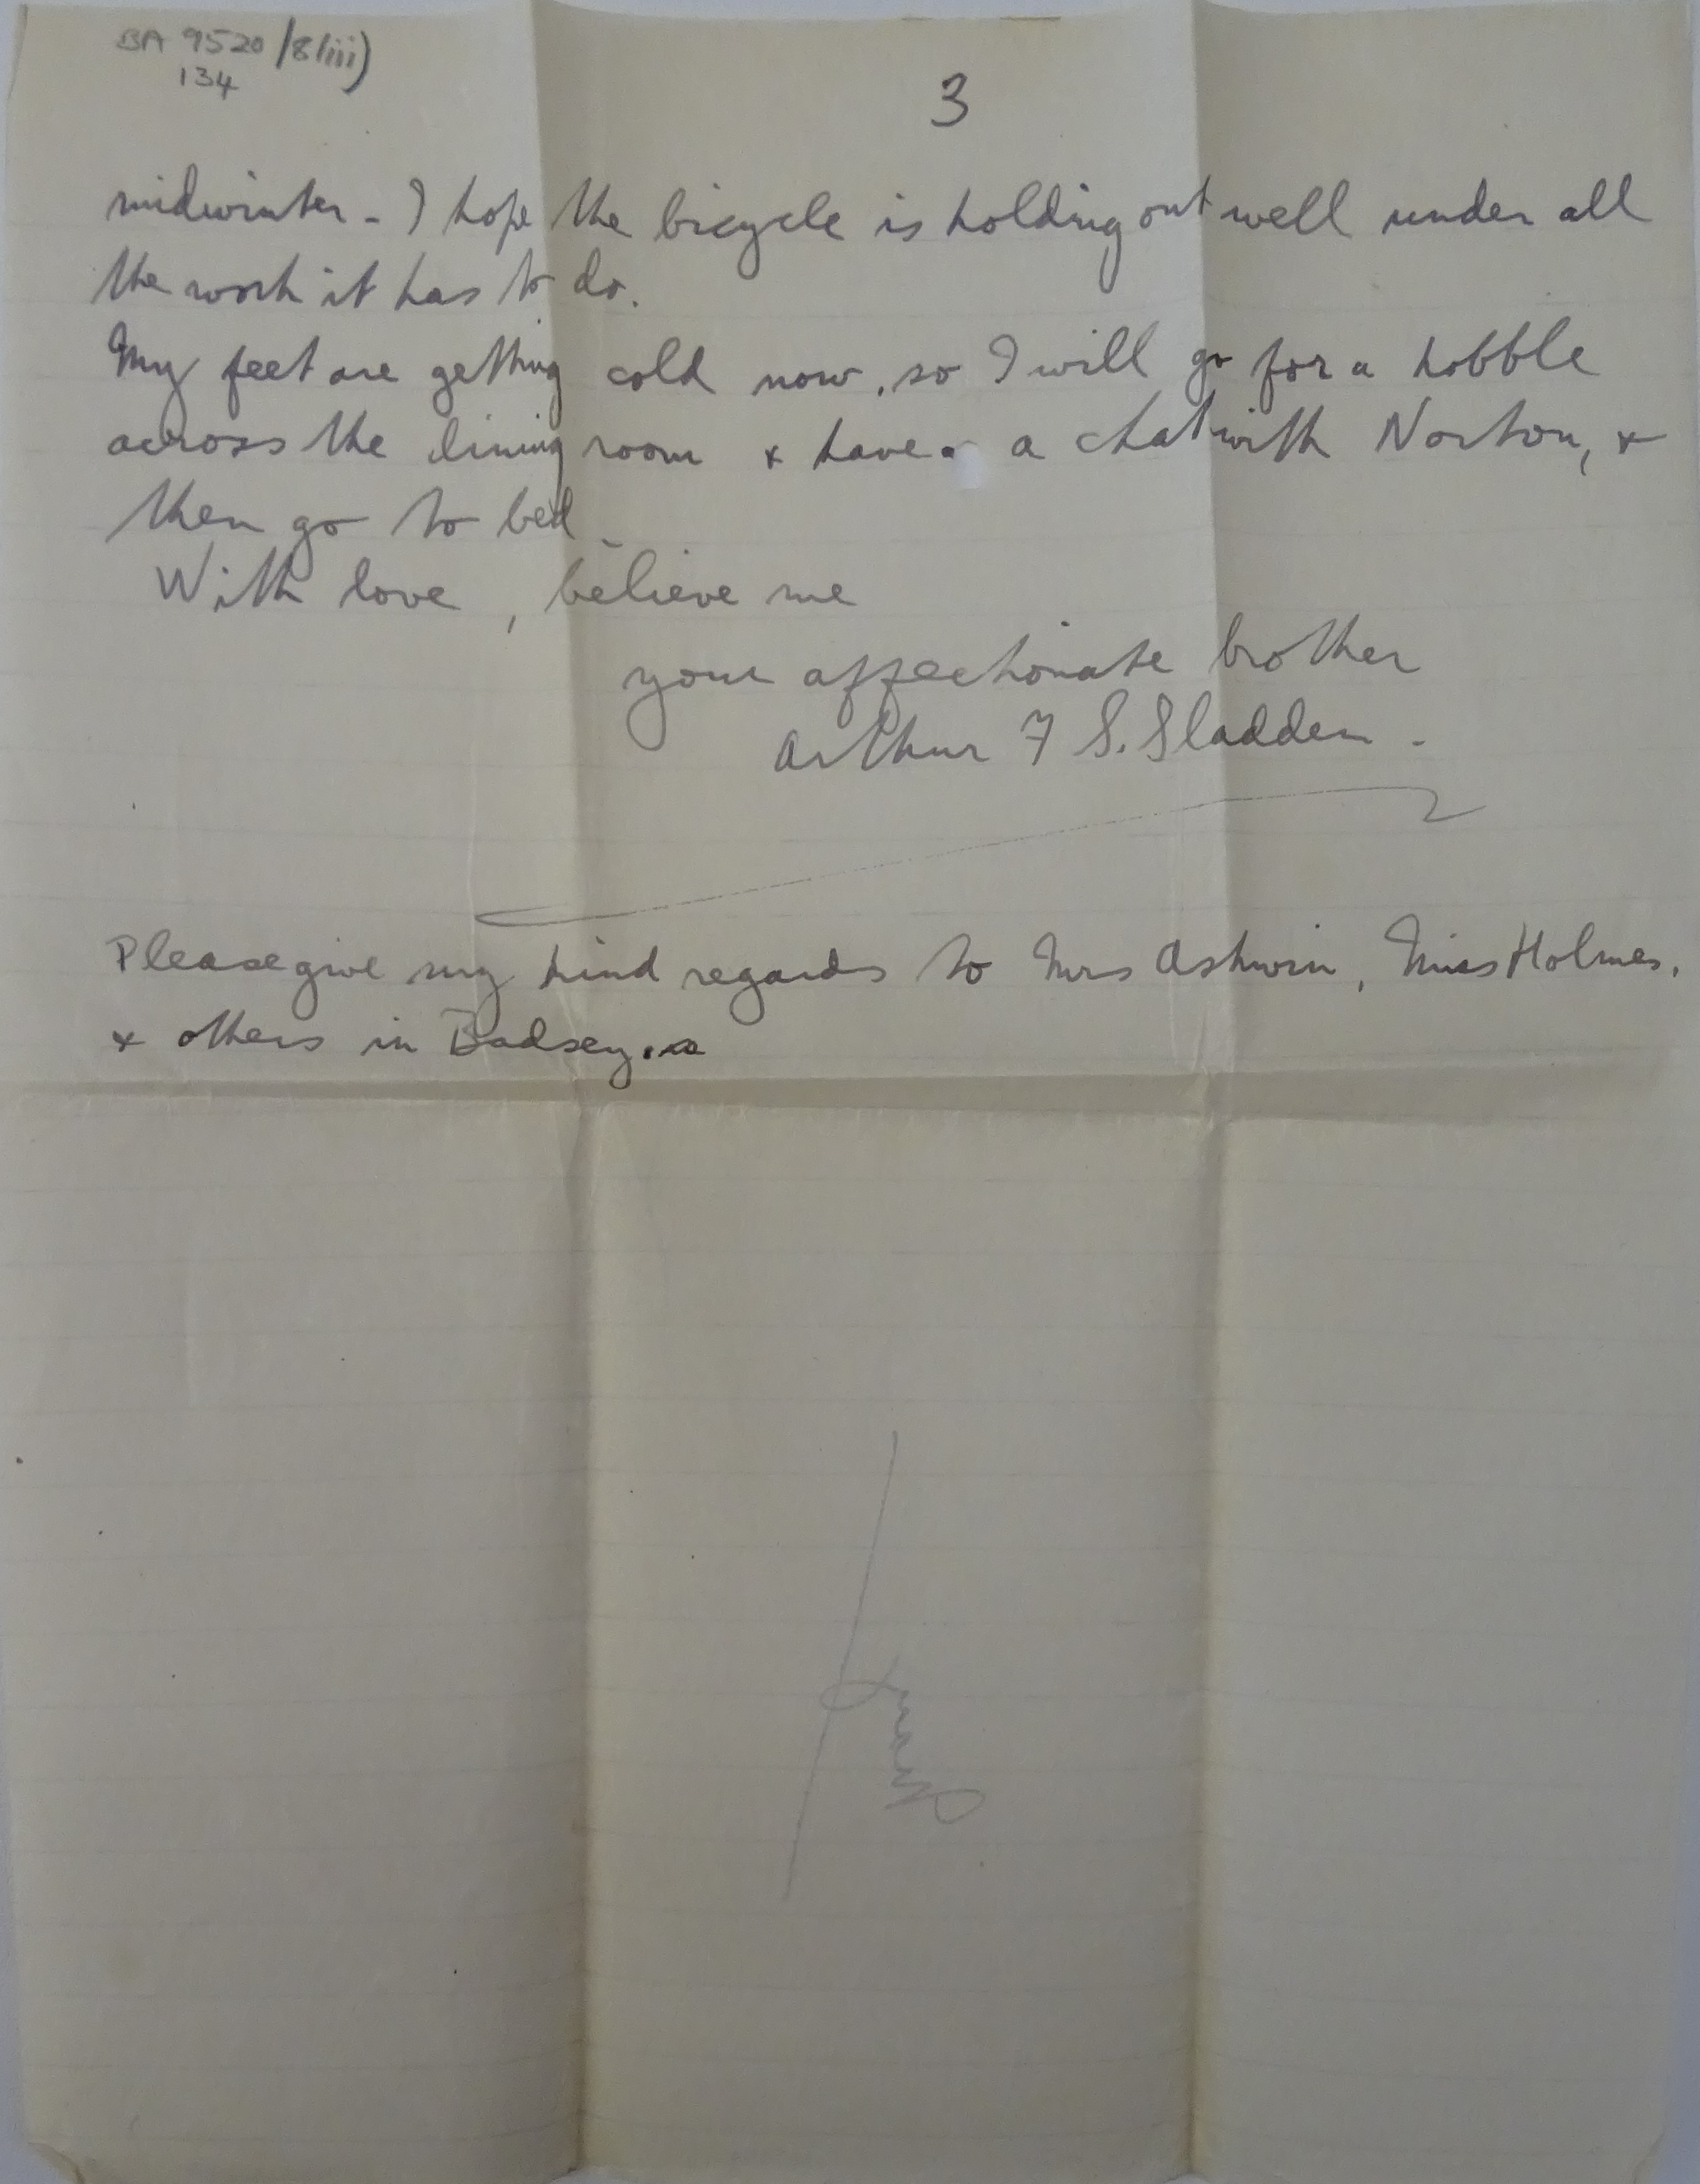 BA 9520/8(iii)
134
3
midwinter - I hope the bicycle is holding out well under all
the work it has to do.
My feet are getting cold now, so I will go for a hobble
across the living room & have a chat with Norton, &
then go to bed
With love, believe me
your affectionate brother
Arthur F S. Sladden -
Please give my kind regards to Mrs Ashwin, Miss Holmes,
& others in Badsey.